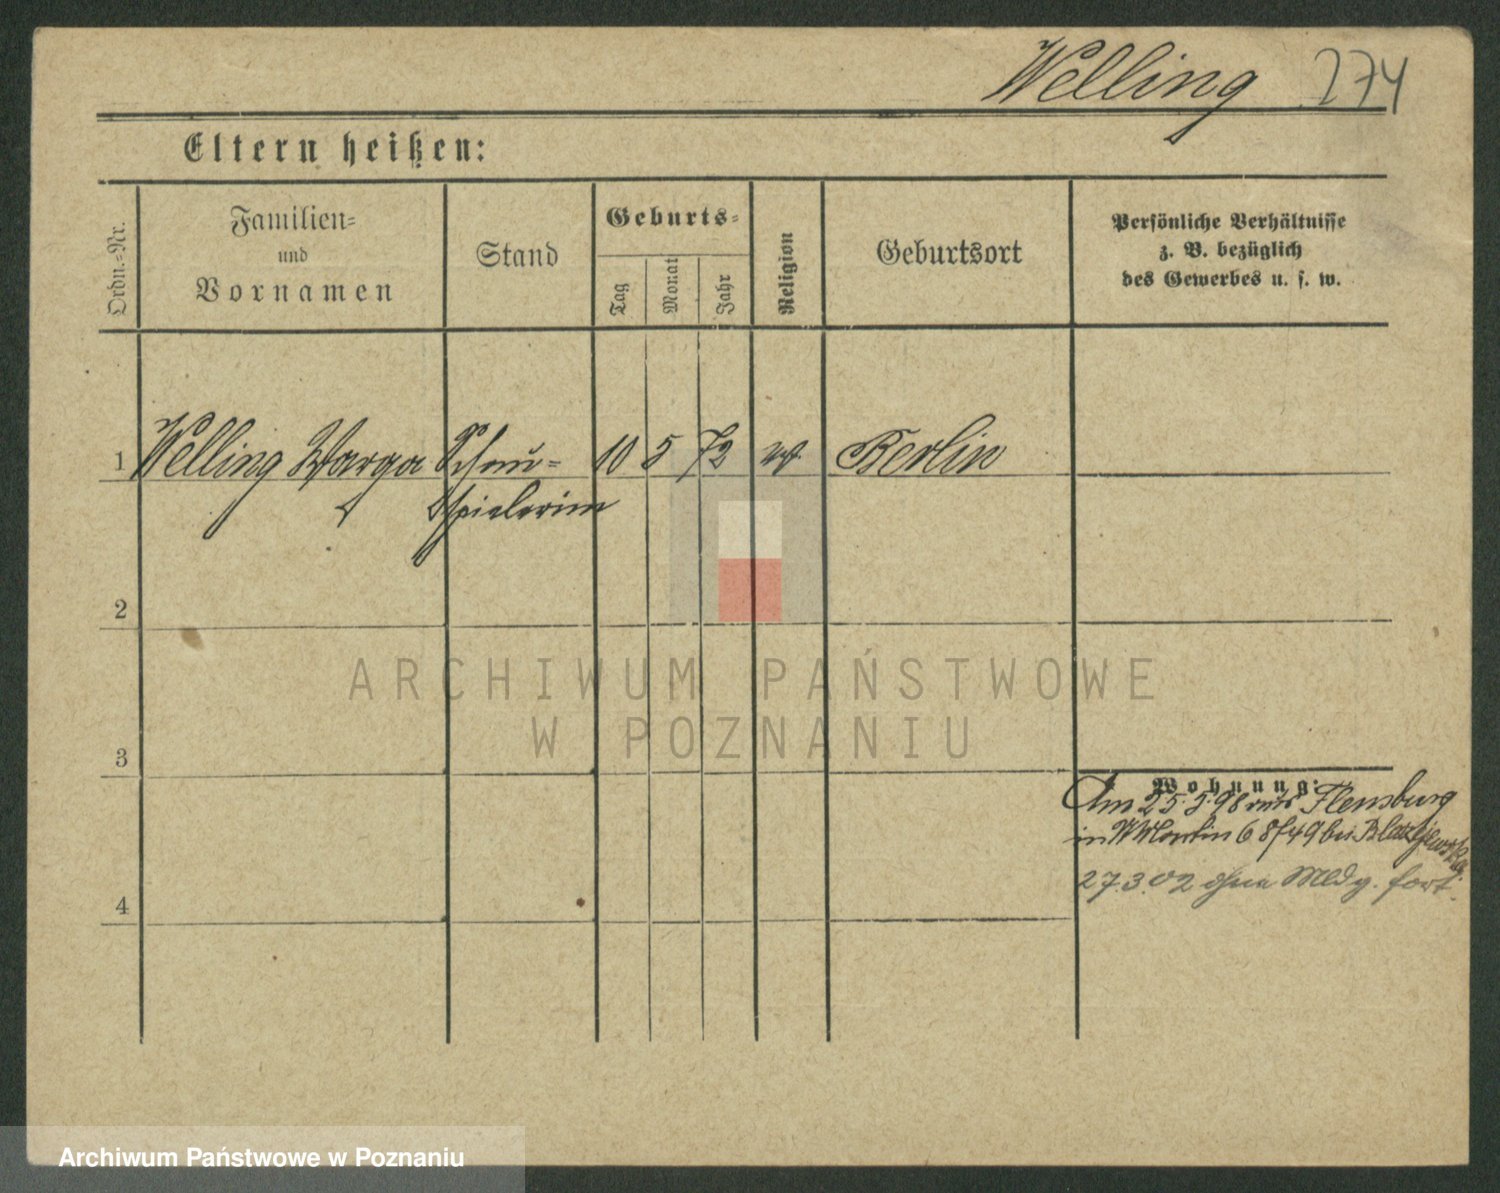 Welling 274
Eltern heißen:
Ordn.-Nr.
Familien-
und
Vornamen
Stand
Geburts-
Tag
Monat
Jahr
Religion
Geburtsort
Persönliche Verhältnisse
z. B. bezüglich
des Gewerbes u. s. w.
1 Welling Warga Schau- 10 5 72 Berlin
spielerin
2
ARCHIWUM PAŃSTWOWE
W POZNANIU
3
Wohnung:
Am 25.5.98 aus Flensburg
in Martin 68/49 bei
4
27.3.02 ohne Mldg. fort.
Archiwum Państwowe w Poznaniu